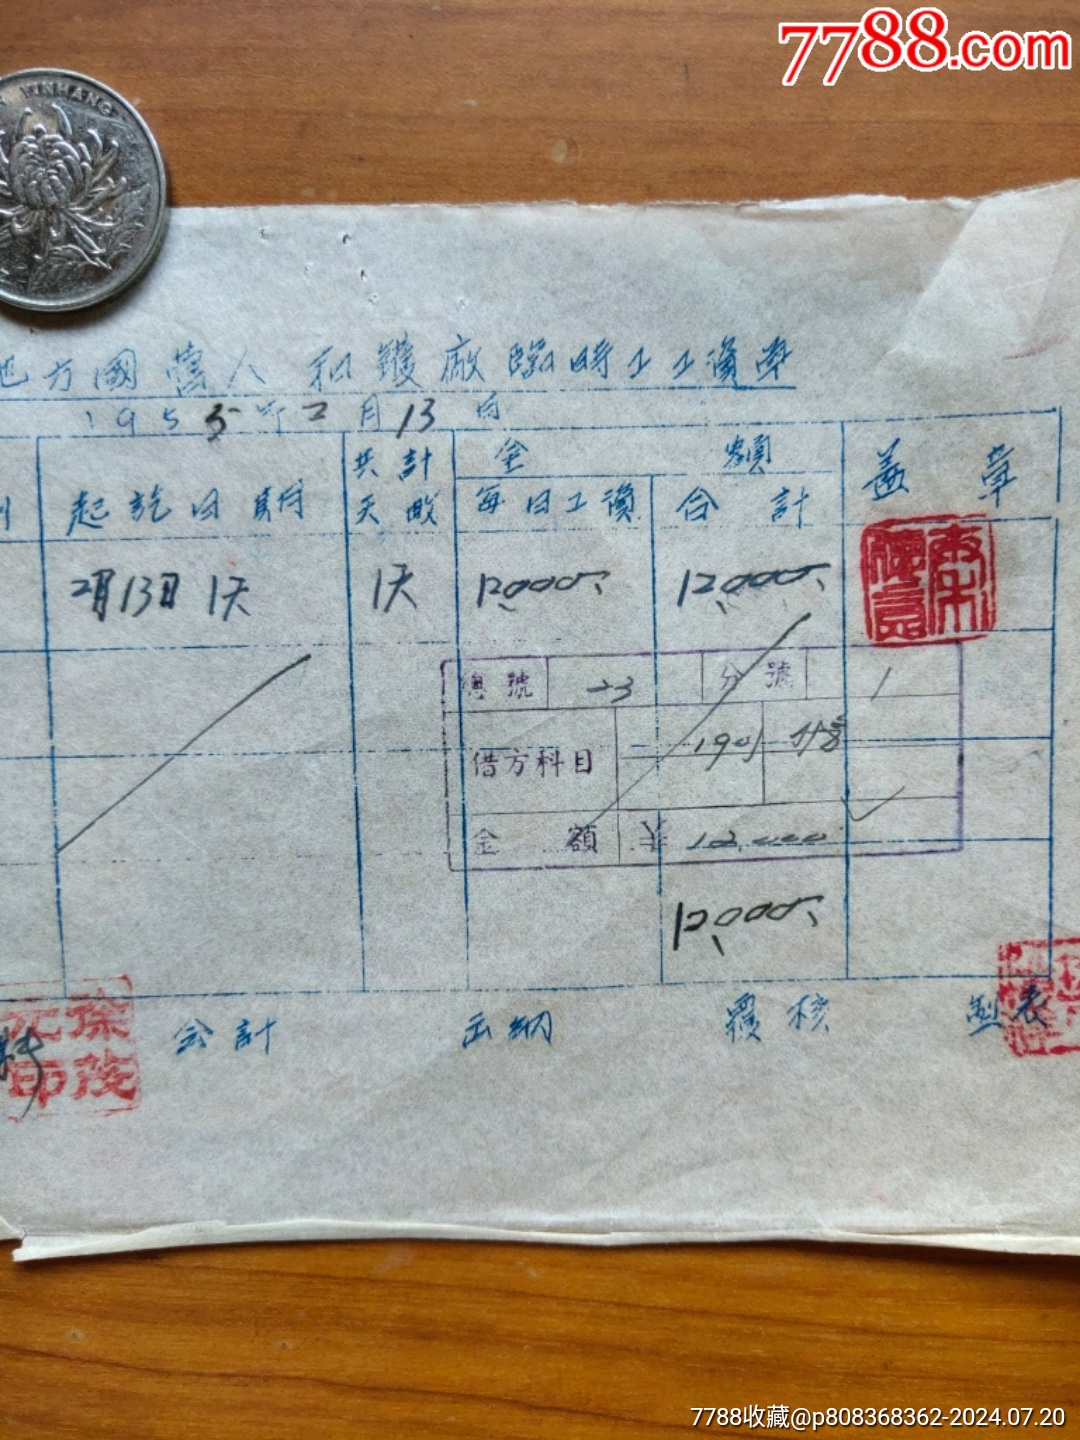 7788.com
YINHANG
地方國營人和鍰廠臨時工工資单
1955年2月13日
共計 金 額 蓋章
别 起訖日期 天数 每日工資 合計
2月13日 1天 1天 12,000 12,000
總號 23 分號 1
借方科目
金額 12,000
12,000
会計 出纳 覆核 製表
徐茂元印
7788收藏@p808368362-2024.07.20